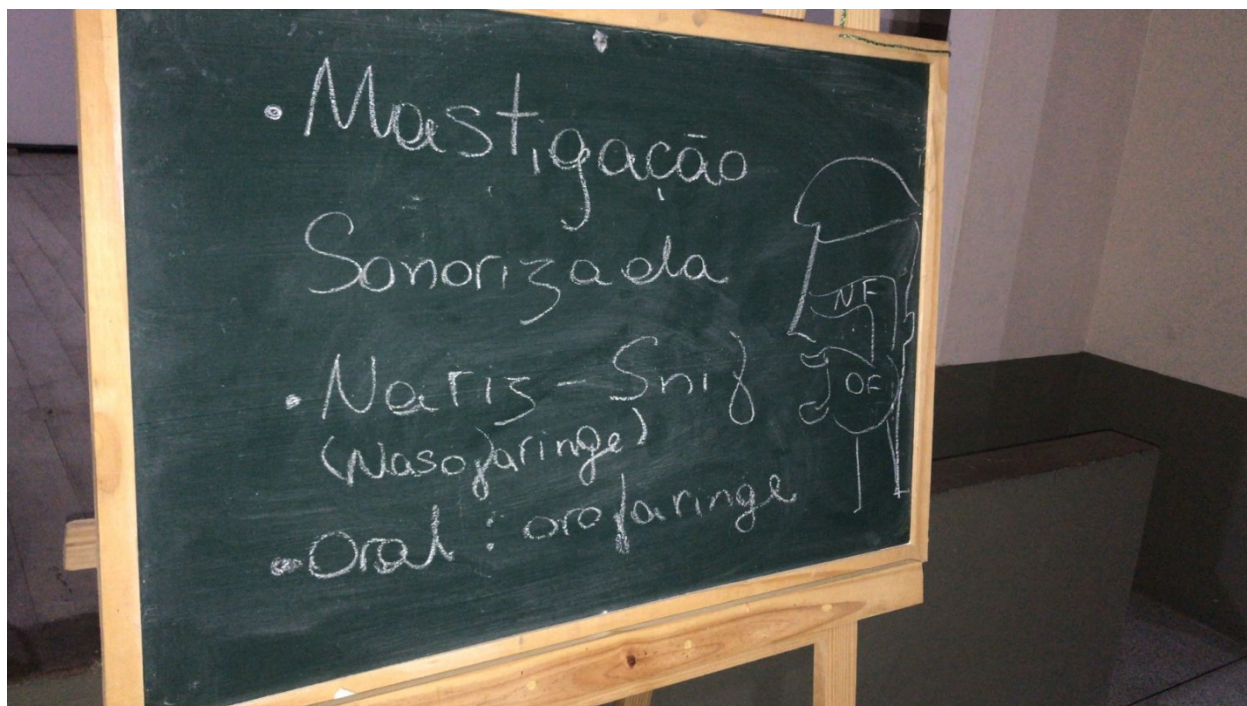 • Mastigação
Sonorizada
• Nariz - Snif
(Nasofaringe)
• Oral : orofaringe
NF
OF